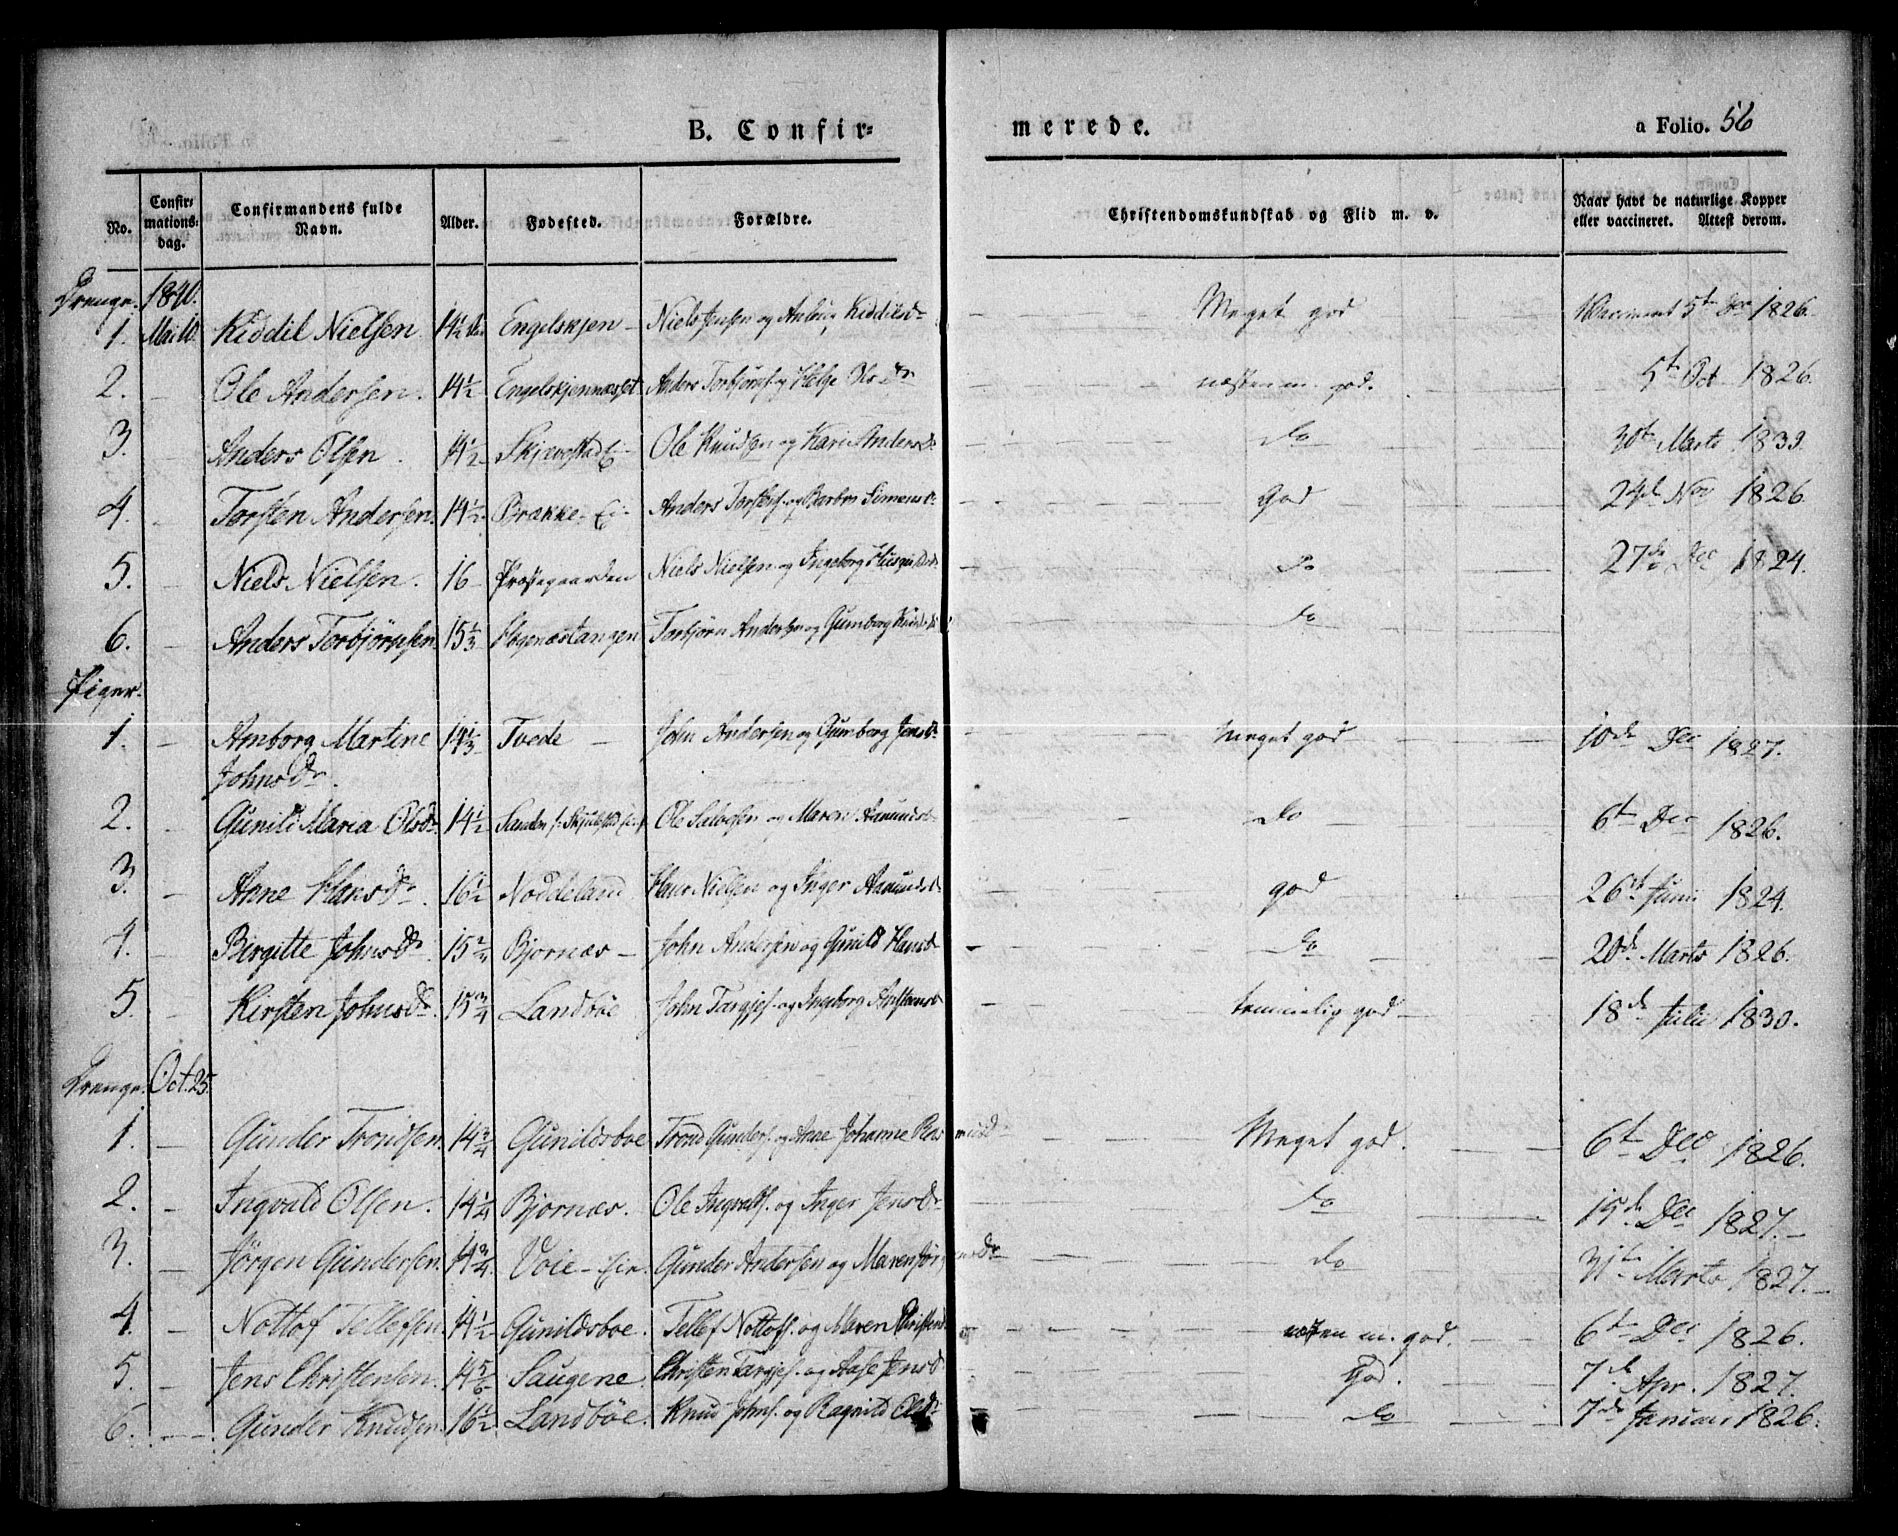 B. Confir= merede. a Folio. 56
No. Confir= mations= dag. Confirmandens fulde Navn. Alder. Fødested. Forældre. Christendomskundskab og Flid m. v. Naar havt de naturlige Kopper eller vaccineret. Attest derom.
Drenge. 1840.
1. Mai 10. Kiddil Nielsen 14½ Engelskjen – Niels Jensen og Kiddilsdr – Meget god 5te 1826.
2. – Ole Andersen. 14½ Engelskjennæsset Anders Torbjørns. og Helge Olsdr – næsten m. god. 5te Oct 1826.
3. Anders Olsen 14½ Skjævestad Ei. Ole Knudsen og Kari Andersdr – do 30te Marts 1839.
4. – Torsten Andersen. 14½ Brække – Ei. Anders Torstens. og Barbro Simensdr – God 24de Nov 1826.
5. – Niels Nielsen. 16 – Præstegaarden Niels Nielsen og Ingeborg – do 27de Dec 1824.
6. – Anders Torbjørnsen 15⅓ Torbjørn Andersen og Gumborg Knudsdr do
Piger.
1. – Amborg Martine 14⅓ Tvede – John Andersen og Gumborg Jensdr – Meget god 10de Dec 1827.
Johnsdr.
2. – Gunild Maria Olsdr 14½ Sanden Ole Salvesen og Maren Aanunds – do 6te Dec 1826.
3. – Anne Hansdr. 16½ Noddeland Hans Nielsen og Inger Aanundsdr – god 26de Juni 1824.
4. – Birgitte Johnsdr. 15 Bjornæs – John Andersen og Gunild Hansd – do 20de Marts 1826.
5. – Kirsten Johnsdr. 15¾ Landbøe John Targjes. og Ingeborg – temmelig god – 18de Julii 1830.
Drenge. Oct. 25.
1. – Gunder Trondsen. 14¾ Gunildsboe Trond Gunders. og Anne Johanne Rasmusdr – Meget god. 6te Dec 1826.
2. – Ingvald Olsen. 14¼ Bjornæs. Ole Ingvalds. og Inger Jensdr – do 15de Dec 1827. –
3. – Jørgen Gundersen. 14¾ Voie – Ei. Gunder Andersen og Maren Jørgensdr – do Marts 1827. –
4. – Nottof Tellefsen. 14½ Gunildsboe. Tellef Nottofs. og Maren Christensdr – næsten m. god. 6te Dec 1826.
5. – Jens Christensen. 14⅚ Saugene. Christen Targjes. og Aase Jensdr God. 7de Apr. 1827.
6. – Gunder Knudsen. 16½ Landbøe. Knud Johns. og Ragnild Olsdr – do 7de Januar 1826.